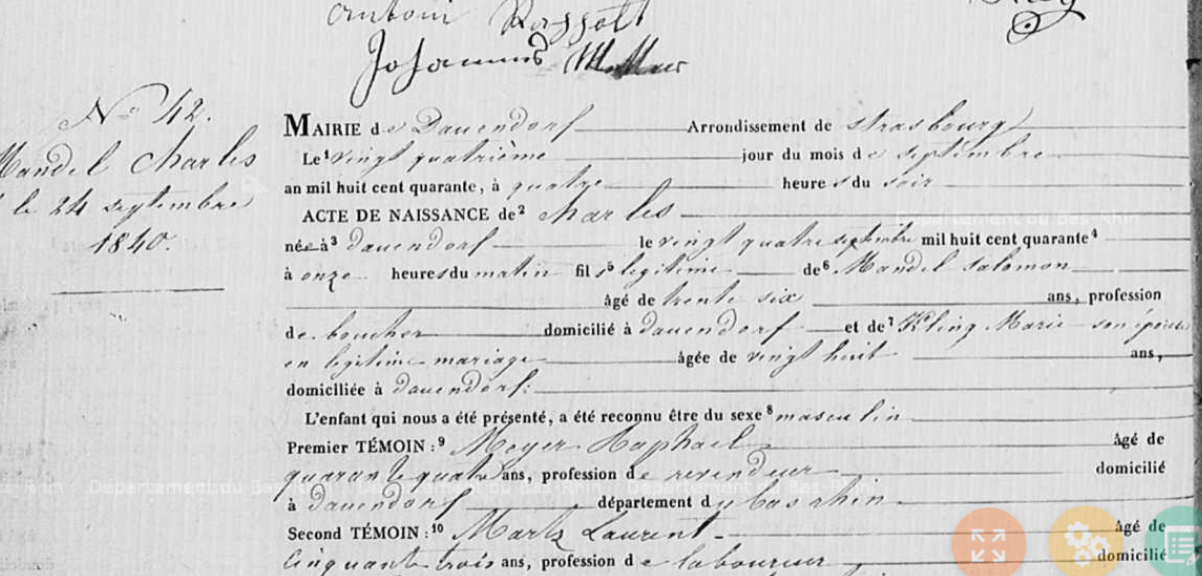 Johannes
N° 42.
Mandel Charles
le 24 septembre
1840.
MAIRIE de Dauendorf Arrondissement de Strasbourg
Le¹ vingt quatrième jour du mois de septembre
an mil huit cent quarante, à quatre heures du soir
ACTE DE NAISSANCE de² Charles
née à³ dauendorf le vingt quatre septembre mil huit cent quarante⁴
à onze heures du matin fils⁵ legitime de⁶ Mandel Salomon
âgé de trente six ans, profession
de boucher domicilié à dauendorf et de⁷ Kling Marie son épouse
en legitime mariage âgée de vingt huit ans,
domiclliée à dauendorf:
L'enfant qui nous a été présenté, a été reconnu être du sexe⁸ masculin
Premier TÉMOIN :⁹ Meyer Raphael âgé de
quarante quatre ans, profession de revendeur domicilié
à dauendorf département du bas rhin
Second TÉMOIN :¹⁰ Martz Laurent âgé de
Cinquante trois ans, profession de laboureur domicilié
Département du Bas-Rhin